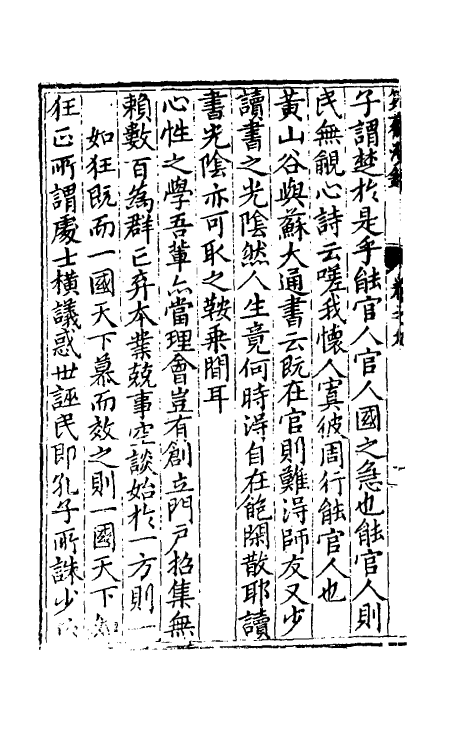 子謂楚於是乎能官人官人國之急也能官人則
民無覦心詩云嗟我懷人寘彼周行能官人也
黃山谷與蘇大通書云既在官則難淂師友又少
讀書之光隂然人生竟何時淂自在飽閑散耶讀
書光陰亦可取之鞍乗間耳
心性之學吾輩亦當理會豈有創立門戸招集無
賴數百為群亡弃本業兢事空談始於一方則一
如狂既而一國天下慕而效之則一國天下如
狂正所謂處士橫議惑世誣民即孔子所誅少
卷之九